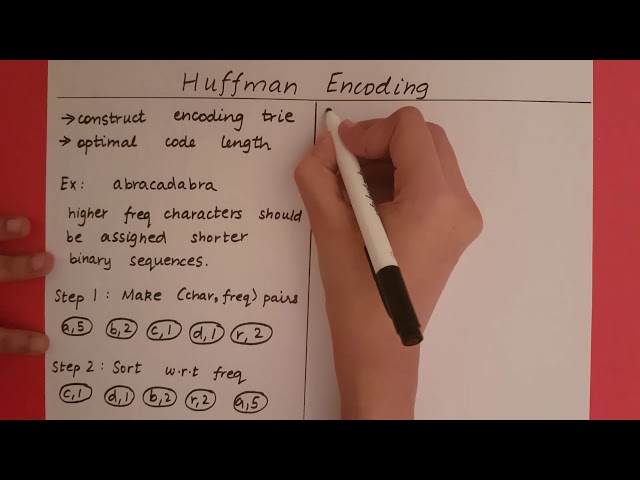 Huffman Encoding
→ construct encoding trie
→ optimal code length
Ex: abracadabra
higher freq characters should
be assigned shorter
binary sequences.
Step 1: Make (char, freq) pairs
a,5 b,2 c,1 d,1 r,2
Step 2: Sort w.r.t freq
c,1 d,1 b,2 r,2 a,5